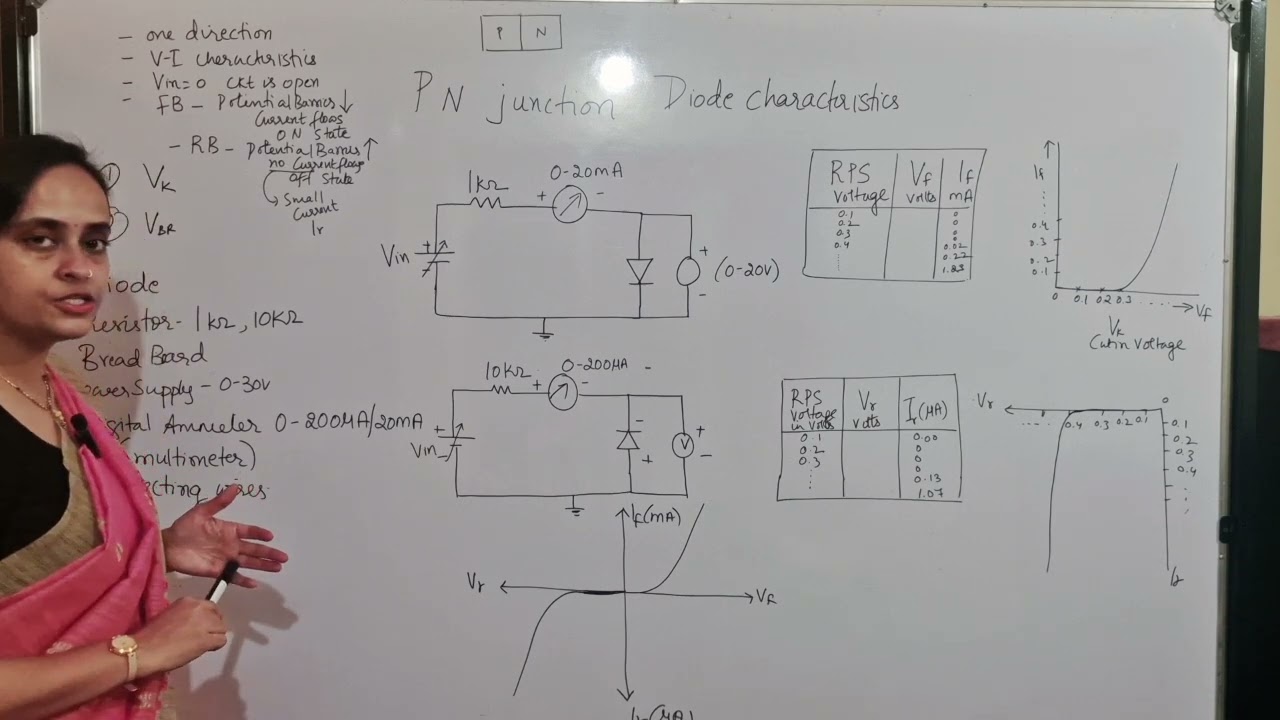 - one direction
- V-I characteristics
- Vin=0 ckt is open
- FB - Potential Barrier ↓
Current flows
ON State
- RB - Potential Barrier ↑
no current flows
OFF State
↳ Small
Current
Ir
VK
VBR
iode
Resistor- 1KΩ, 10KΩ
Bread Board
ower Supply - 0-30V
igital Ammeter 0-200μA/20mA
multimeter)
cting wires
P N
PN junction Diode characteristics
1KΩ + 0-20mA -
Vin + -
+ (0-20V) -
10KΩ + 0-200μA -
Vin + -
- +
+ V -
If(mA)
Vr Vf
Ir(μA)
RPS Voltage Vf volts If mA
0.1 0
0.2 0
0.3 0
0.4 0
0.02
0.27
1.83
RPS Voltage in volts Vr volts Ir(μA)
0.1 0.00
0.2 0
0.3 0
0
0.13
1.07
If
0.4
0.3
0.2
0.1
0 0.1 0.2 0.3 ..... Vf
VK
Cutin Voltage
Vr ..... 0.4 0.3 0.2 0.1 0
0.1
0.2
0.3
0.4
Ir